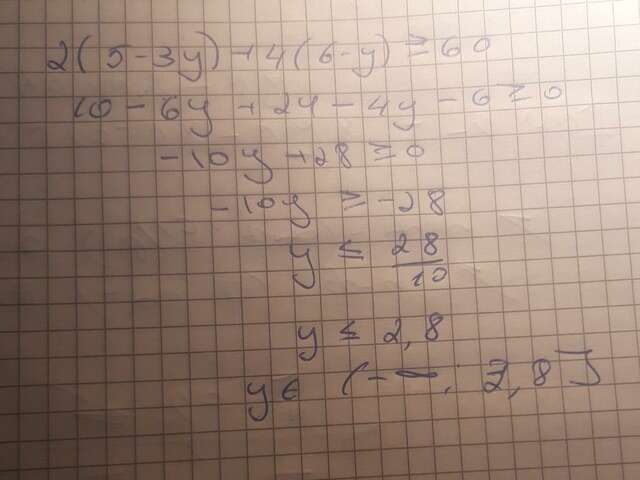 2(5-3y)+4(6-y)≥60
10-6y+24-4y-6≥0
-10y+28≥0
-10y≥-28
y≤28/10
y≤2,8
y∈(-∞; 2,8]